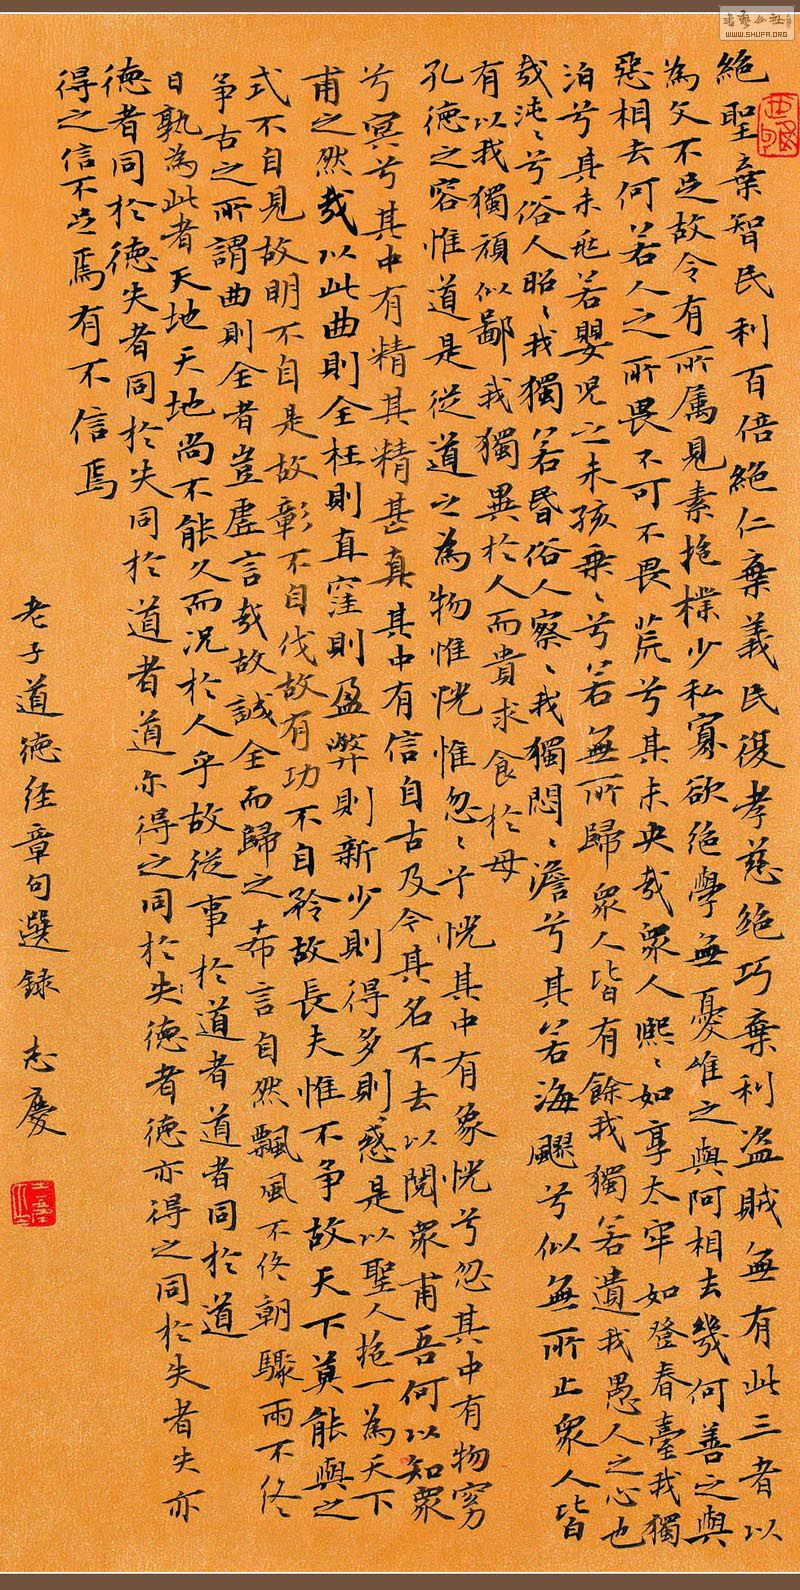 絶聖棄智民利百倍絶仁棄義民復孝慈絶巧棄利盗賊無有此三者以
為文不足故令有所属見素抱樸少私寡欲絶學無憂唯之與阿相去幾何善之與
惡相去何若人之所畏不可不畏荒兮其未央哉衆人熙〻如享太牢如登春臺我獨
泊兮其未兆若嬰児之未孩乗〻兮若無所歸衆人皆有餘我獨若遺我愚人之心也
哉沌〻兮俗人昭〻我獨若昏俗人察〻我獨悶〻澹兮其若海飂兮似無所止衆人皆
有以我獨頑似鄙我獨異於人而貴求食於母
孔徳之容惟道是従道之為物惟恍惟忽〻兮恍其中有象恍兮忽其中有物窈
兮冥兮其中有精其精甚真其中有信自古及今其名不去以閲衆甫吾何以知衆
甫之然哉以此曲則全枉則直窪則盈弊則新少則得多則惑是以聖人抱一為天下
式不自見故明不自是故彰不自伐故有功不自矜故長夫惟不争故天下莫能與之
争古之所謂曲則全者豈虚言哉故誠全而歸之希言自然飄風不終朝驟雨不終
日孰為此者天地天地尚不能久而况於人乎故従事於道者道者同於道
徳者同於徳失者同於失同於道者道亦得之同於失徳者徳亦得之同於失者失亦
得之信不足焉有不信焉
老子道徳経章句選録 志慶
WWW.SHUFA.ORG